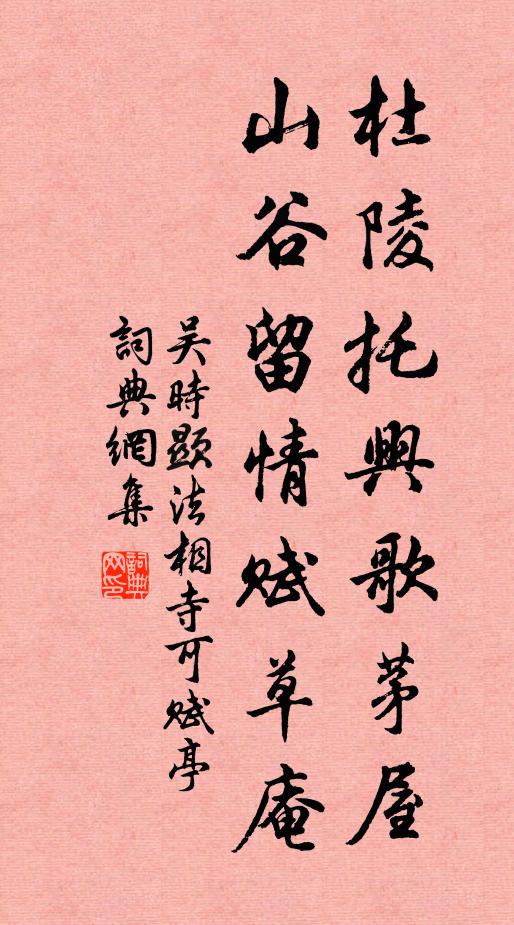 杜陵托興歌茅屋
山谷留情賦草庵
吴時顯法相寺可賦亭
詞典網集
詞典網印